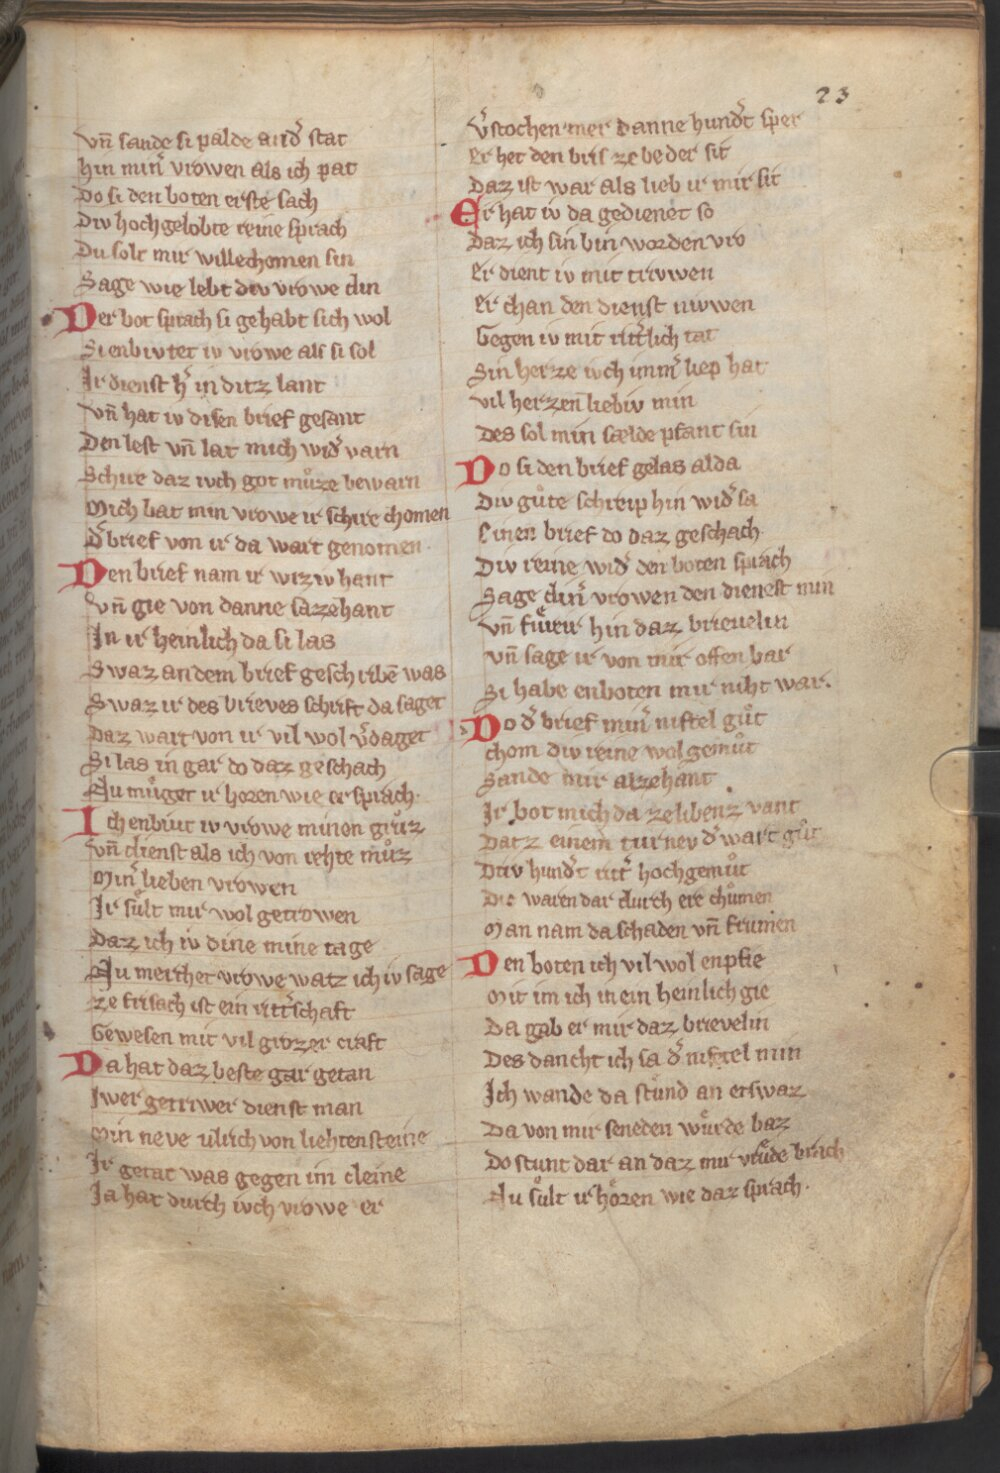 23
Vn̄ sande si palde and̕ stat
hin min̕ vrowen als ich pat
Do si den boten erste sach
Div hochgelobte reine sprach
Du solt mir willechomen sin
Sage wie lebt div vrowe din
Der bot sprach si gehabt sich wol
Si enbivtet iv vrowe als si sol
Ir dienst h̕ in ditz lant
vn̄ hat iv disen brief gesant
Den lest vn̄ lat mich wid̕ varn
Schire daz ivch got muͦze bewarn
Mich bat min vrowe ir schire chomen
d̕ brief von ir da wart genomen
Den brief nam ir wiziv hant
vn̄ gie von danne sazehant
In ir heinlich da si las
Swaz an dem brief geschribē was
Swaz ir des brieves schrift da saget
Daz wart von ir vil wol v̕daget
Si las in gar do daz geschach
Nu muͤget ir horen wie er sprach·
Ich enbiut iv vrowe minen gruͦz
vn̄ dienst als ich von rehte muͦz
Min̕ lieben vrowen
Ir suͤlt mir wol getrowen
Daz ich iv dine mine tage
Nu merchet vrowe watz ich iv sage
ze frisach ist ein ritt̕schaft
Gewesen mit vil grozer craft
Da hat daz beste gar getan
Iwer getriwer dienst man
Min neve ulrich von liehtensteine
Ir getat was gegen im cleine
Ja hat durch ivch vrowe er
v̕stochen mer danne hund̕t sper
Er het den bris ze beder sit
Daz ist war als lieb ir mir sit
Er hat iv da gedienet so
Daz ich sin bin worden vro
Er dient iv mit trivwen
Er chan den dienst nivwen
Gegen iv mit ritt̕lich tat
Sin herze ivch imm̕ liep hat
vil herzen liebiv min
Des sol min sælde pfant sin
Do si den brief gelas alda
Div guͦte schreip hin wid̕ sa
Einen brief do daz geschach·
Div reine wid̕ den boten sprach
Sage din̕ vrowen den dienest min
vn̄ fuͤrir hin daz brievelin
vn̄ sage ir von mir offenbar
Si habe enboten mir niht war·
Do d̕ brief min̕ niftel guͦt
chom div reine wol gemuͦt
Sande mir alzehant
Ir bot mich da ze libenz vant
Datz einem turney d̕ wart guͦt
Driv hund̕t ritt̕ hochgemuͦt
Die waren dar durch ere chuͦmen
Man nam da schaden vn̄ frumen
Den boten ich vil wol enpfie
Mit im ich in ein heinlich gie
Da gab er mir daz brievelin
Des dancht ich sa d̕ niftel min
Ich wande da stuͤnd an etswaz
Da von mir seneden wuͤrde baz
Do stunt dar an daz mir vrůde brach
Nu suͤlt ir hoͤren wie daz sprach·